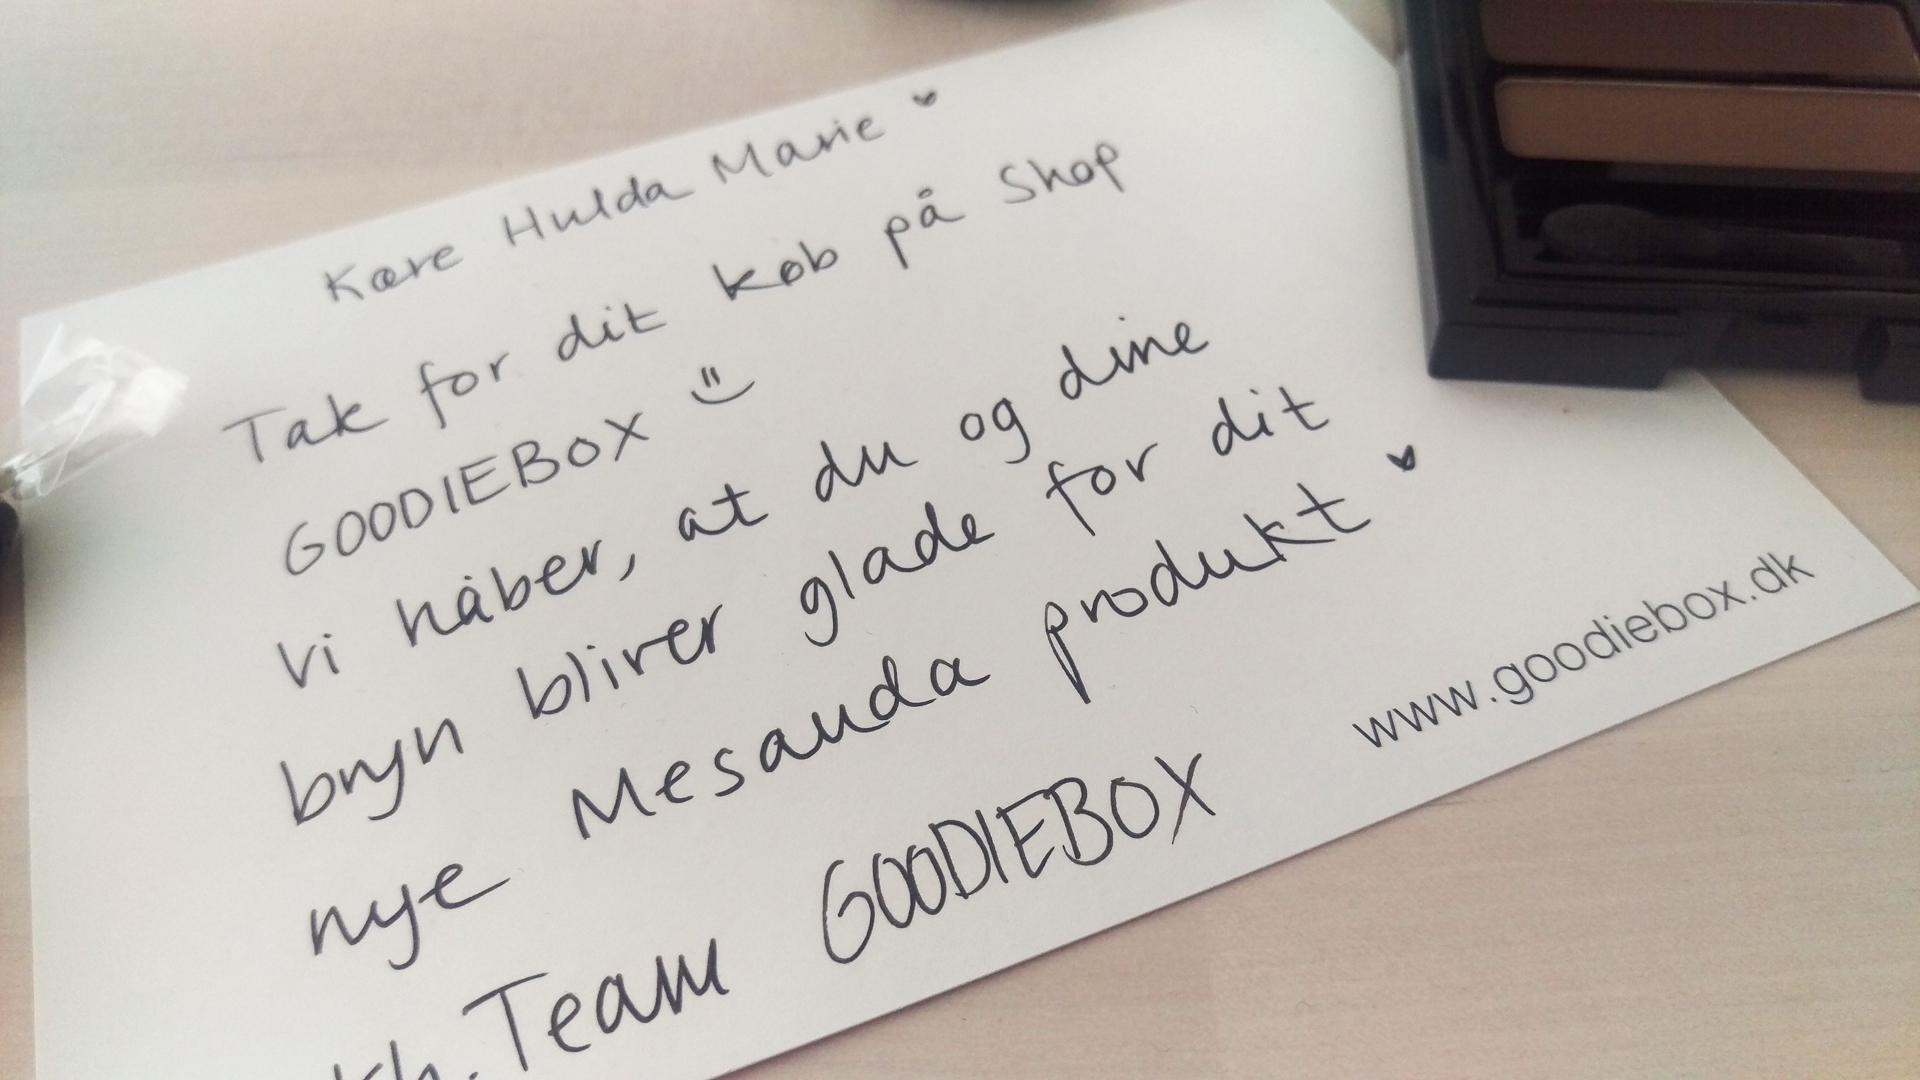 Kære Hulda Marie ♥
Tak for dit køb på Shop
GOODIEBOX
Vi håber, at du og dine
bryn bliver glade for dit
nye Mesauda produkt ♥
Kh. Team GOODIEBOX
www.goodiebox.dk